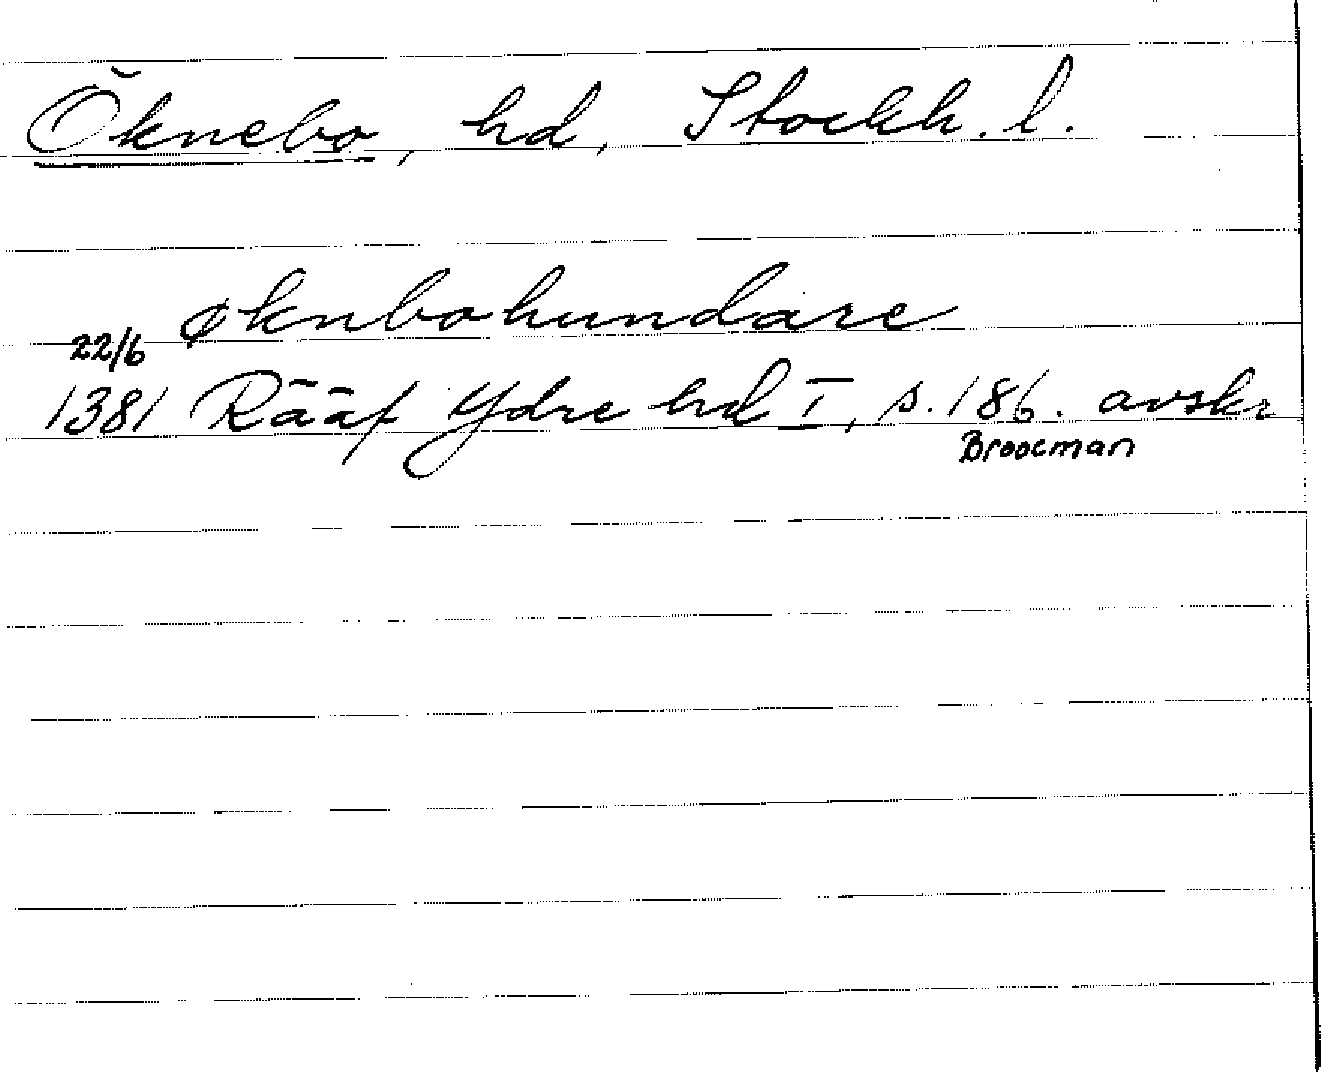 Öknebo, hd, Stockh. l.
øknbohundare
22/6
1381 Rääf Ydre hd I, s. 186. avskr
Broocman